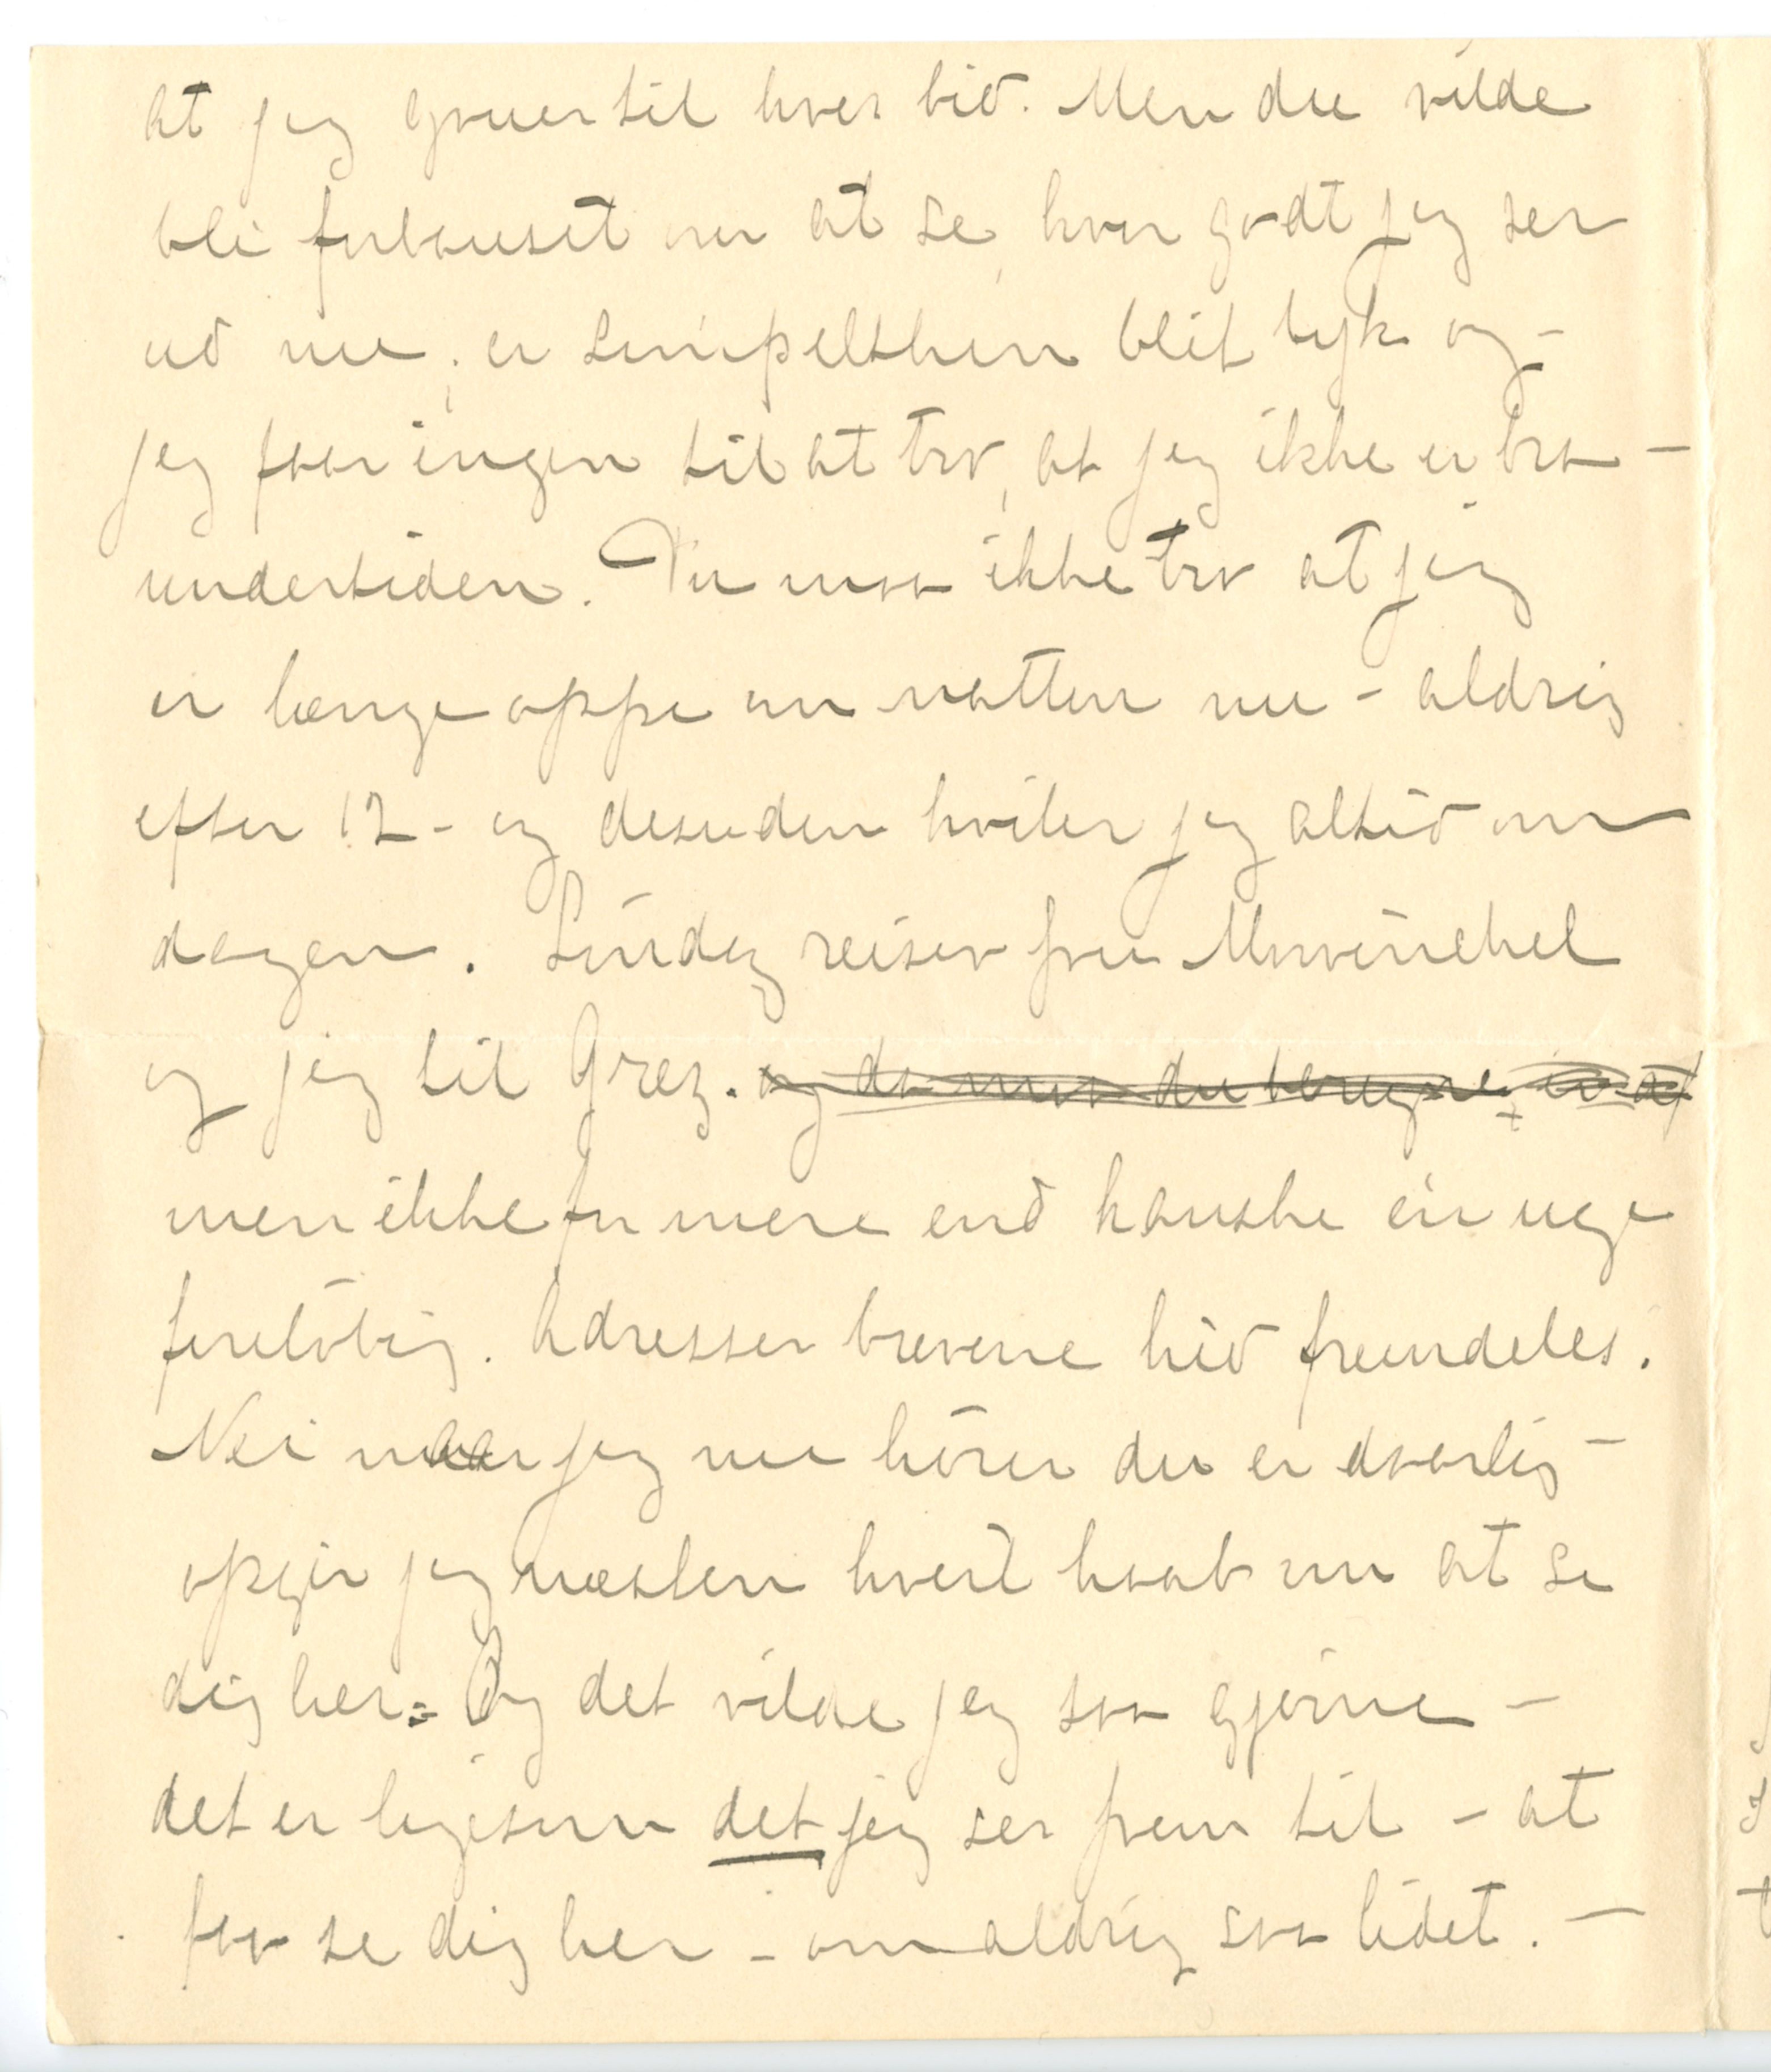 at jeg gruer til hver bid. Men du vilde
bli forbauset over at se, hvor godt jeg ser
ud nu; er simpelthen blit tyk og -
jeg faar ingen til at tro, at jeg ikke er bra -
undertiden. Du maa ikke tro at jeg
er længe oppe om natten nu - aldrig
efter 12 - og desuden hviler jeg altid om
dagen. Søndag reiser fru Mowinckel
og jeg til Grez. og da maa du beregne, at
men ikke for mere end kanske én uge
foreløbig. Adresser brevene hid fremdeles.
Nei naar jeg nu hører du er daarlig -
opgir jeg næsten hvert haab om at se
dig her. - Og det vilde jeg saa gjerne -
det er ligesom det jeg ser frem til - at
faa se dig her - om aldrig saa lidet. -